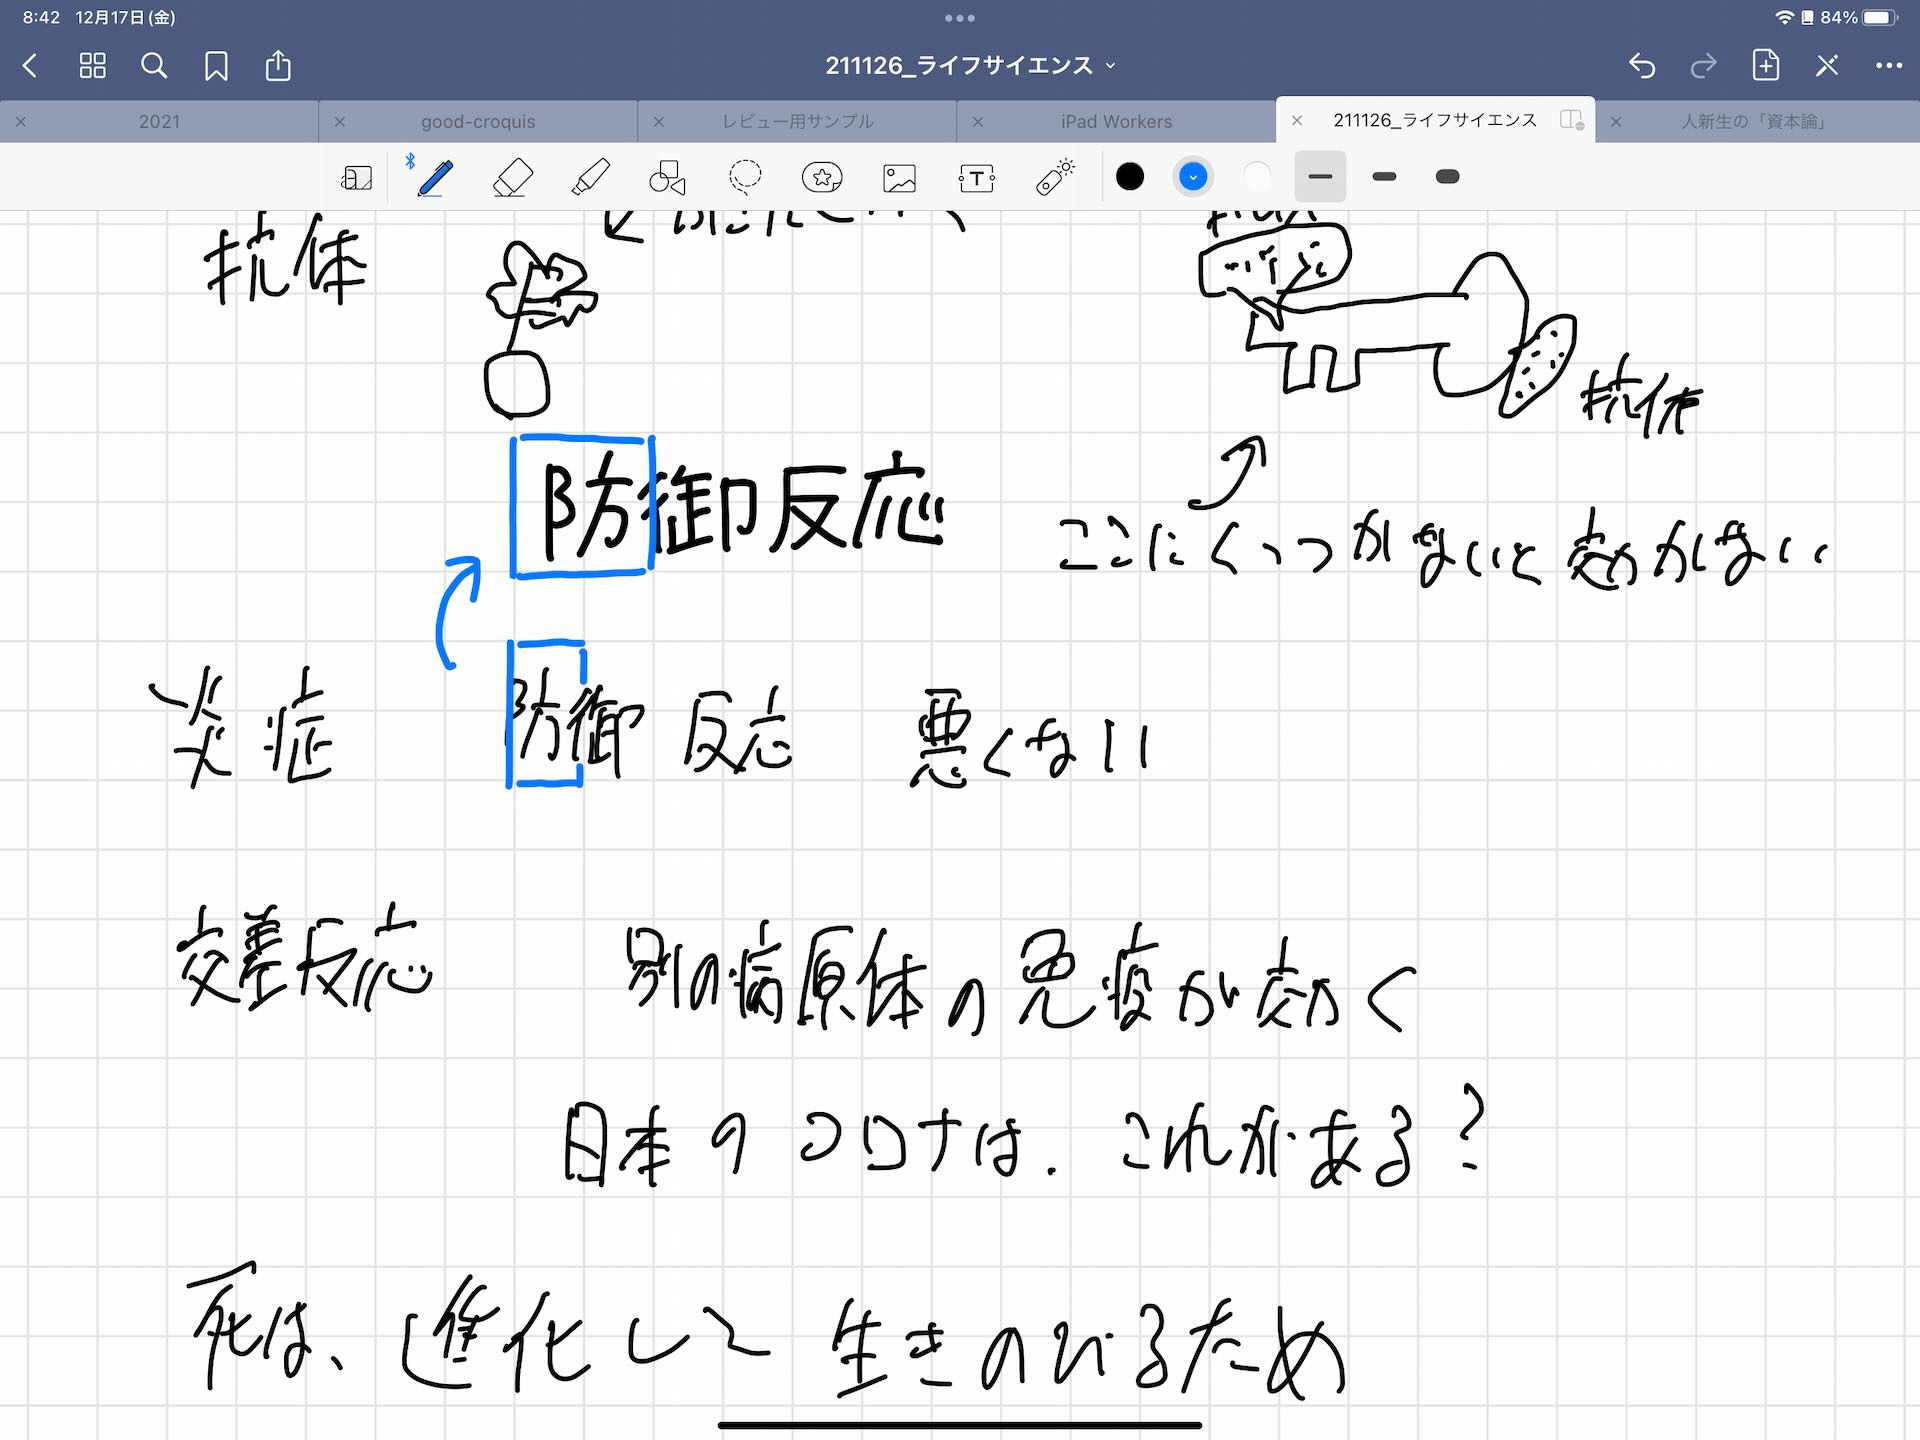 8:42 12月17日(金)
84%
211126_ライフサイエンス
2021
good-croquis
レビュー用サンプル
iPad Workers
211126_ライフサイエンス
人新生の「資本論」
抗体
抗体
防御反応
ここにくっつかないと効かない
炎症 防御反応 悪くない
交差反応 別の病原体の免疫が効く
日本のコロナは.これがある?
死は、進化して生きのびるため